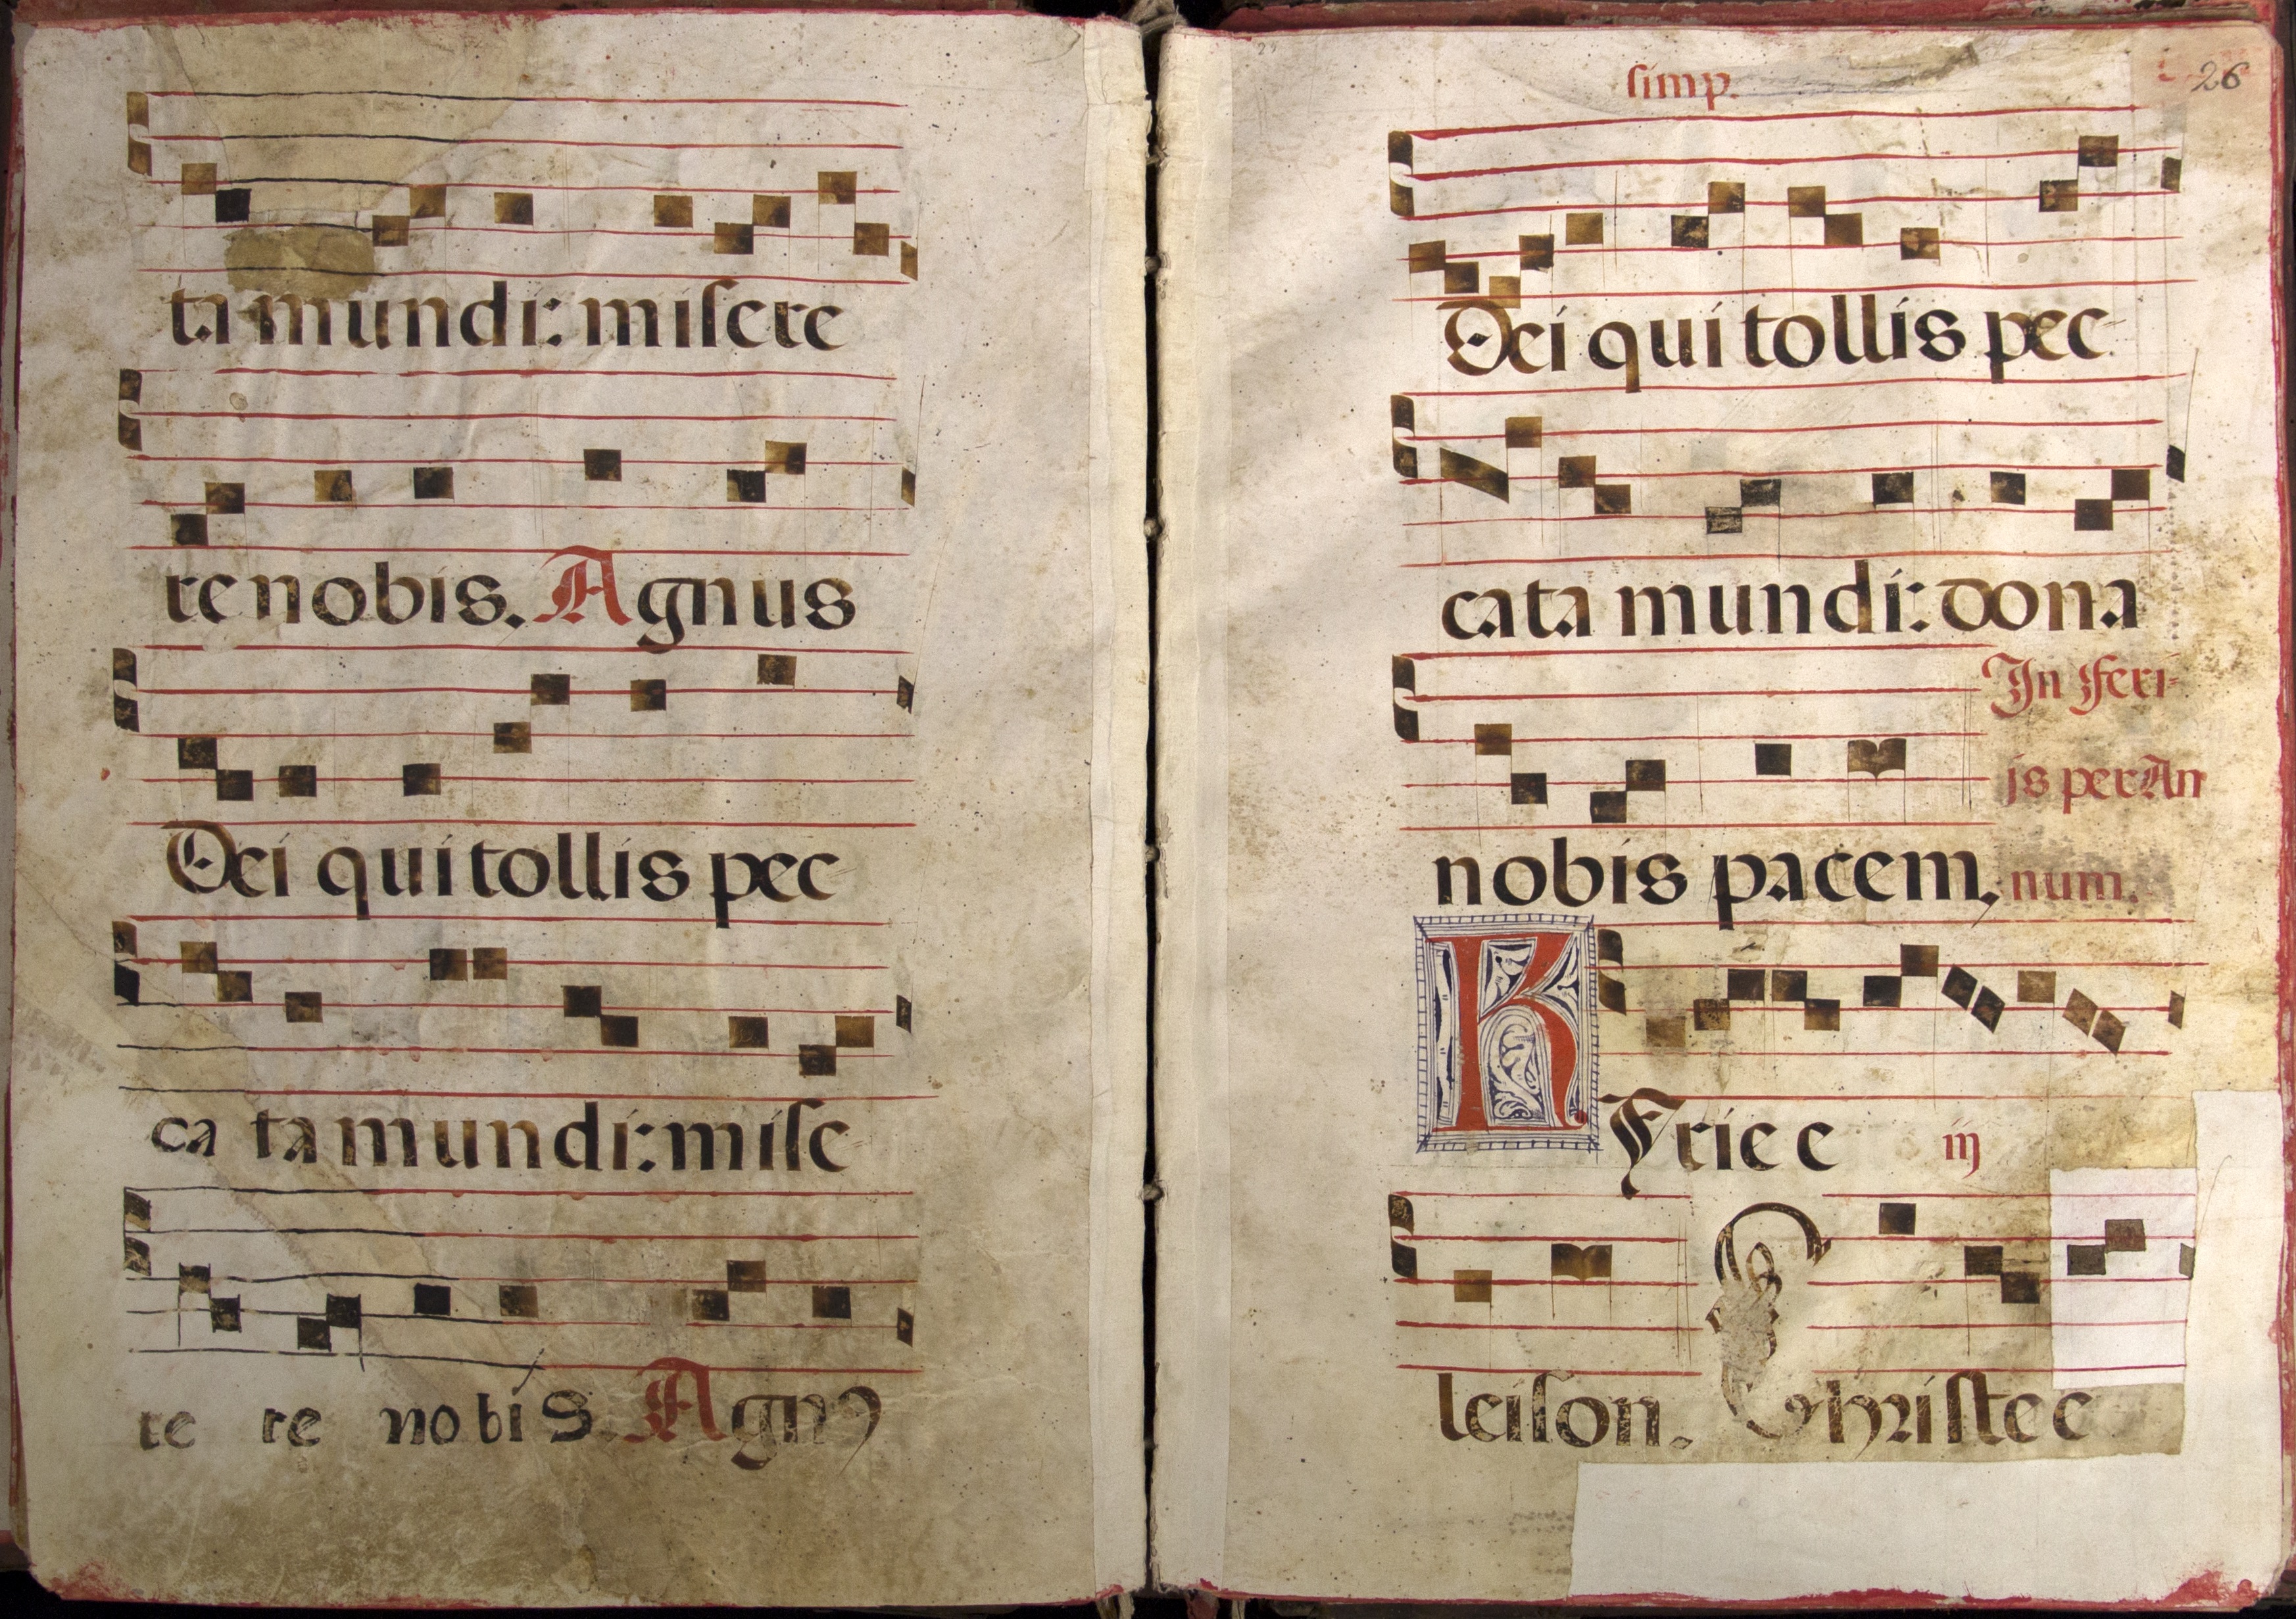 ta mundi: misere
re nobis. Agnus
Dei qui tollis pec
ca ta mundi: mise
re re nobis. Agn9
simp.
26
Dei qui tollis pec-
cata mundi: dona
In Feri-
js per An
nobis pacem, num.
K Yrie e iij
leison. Christe e